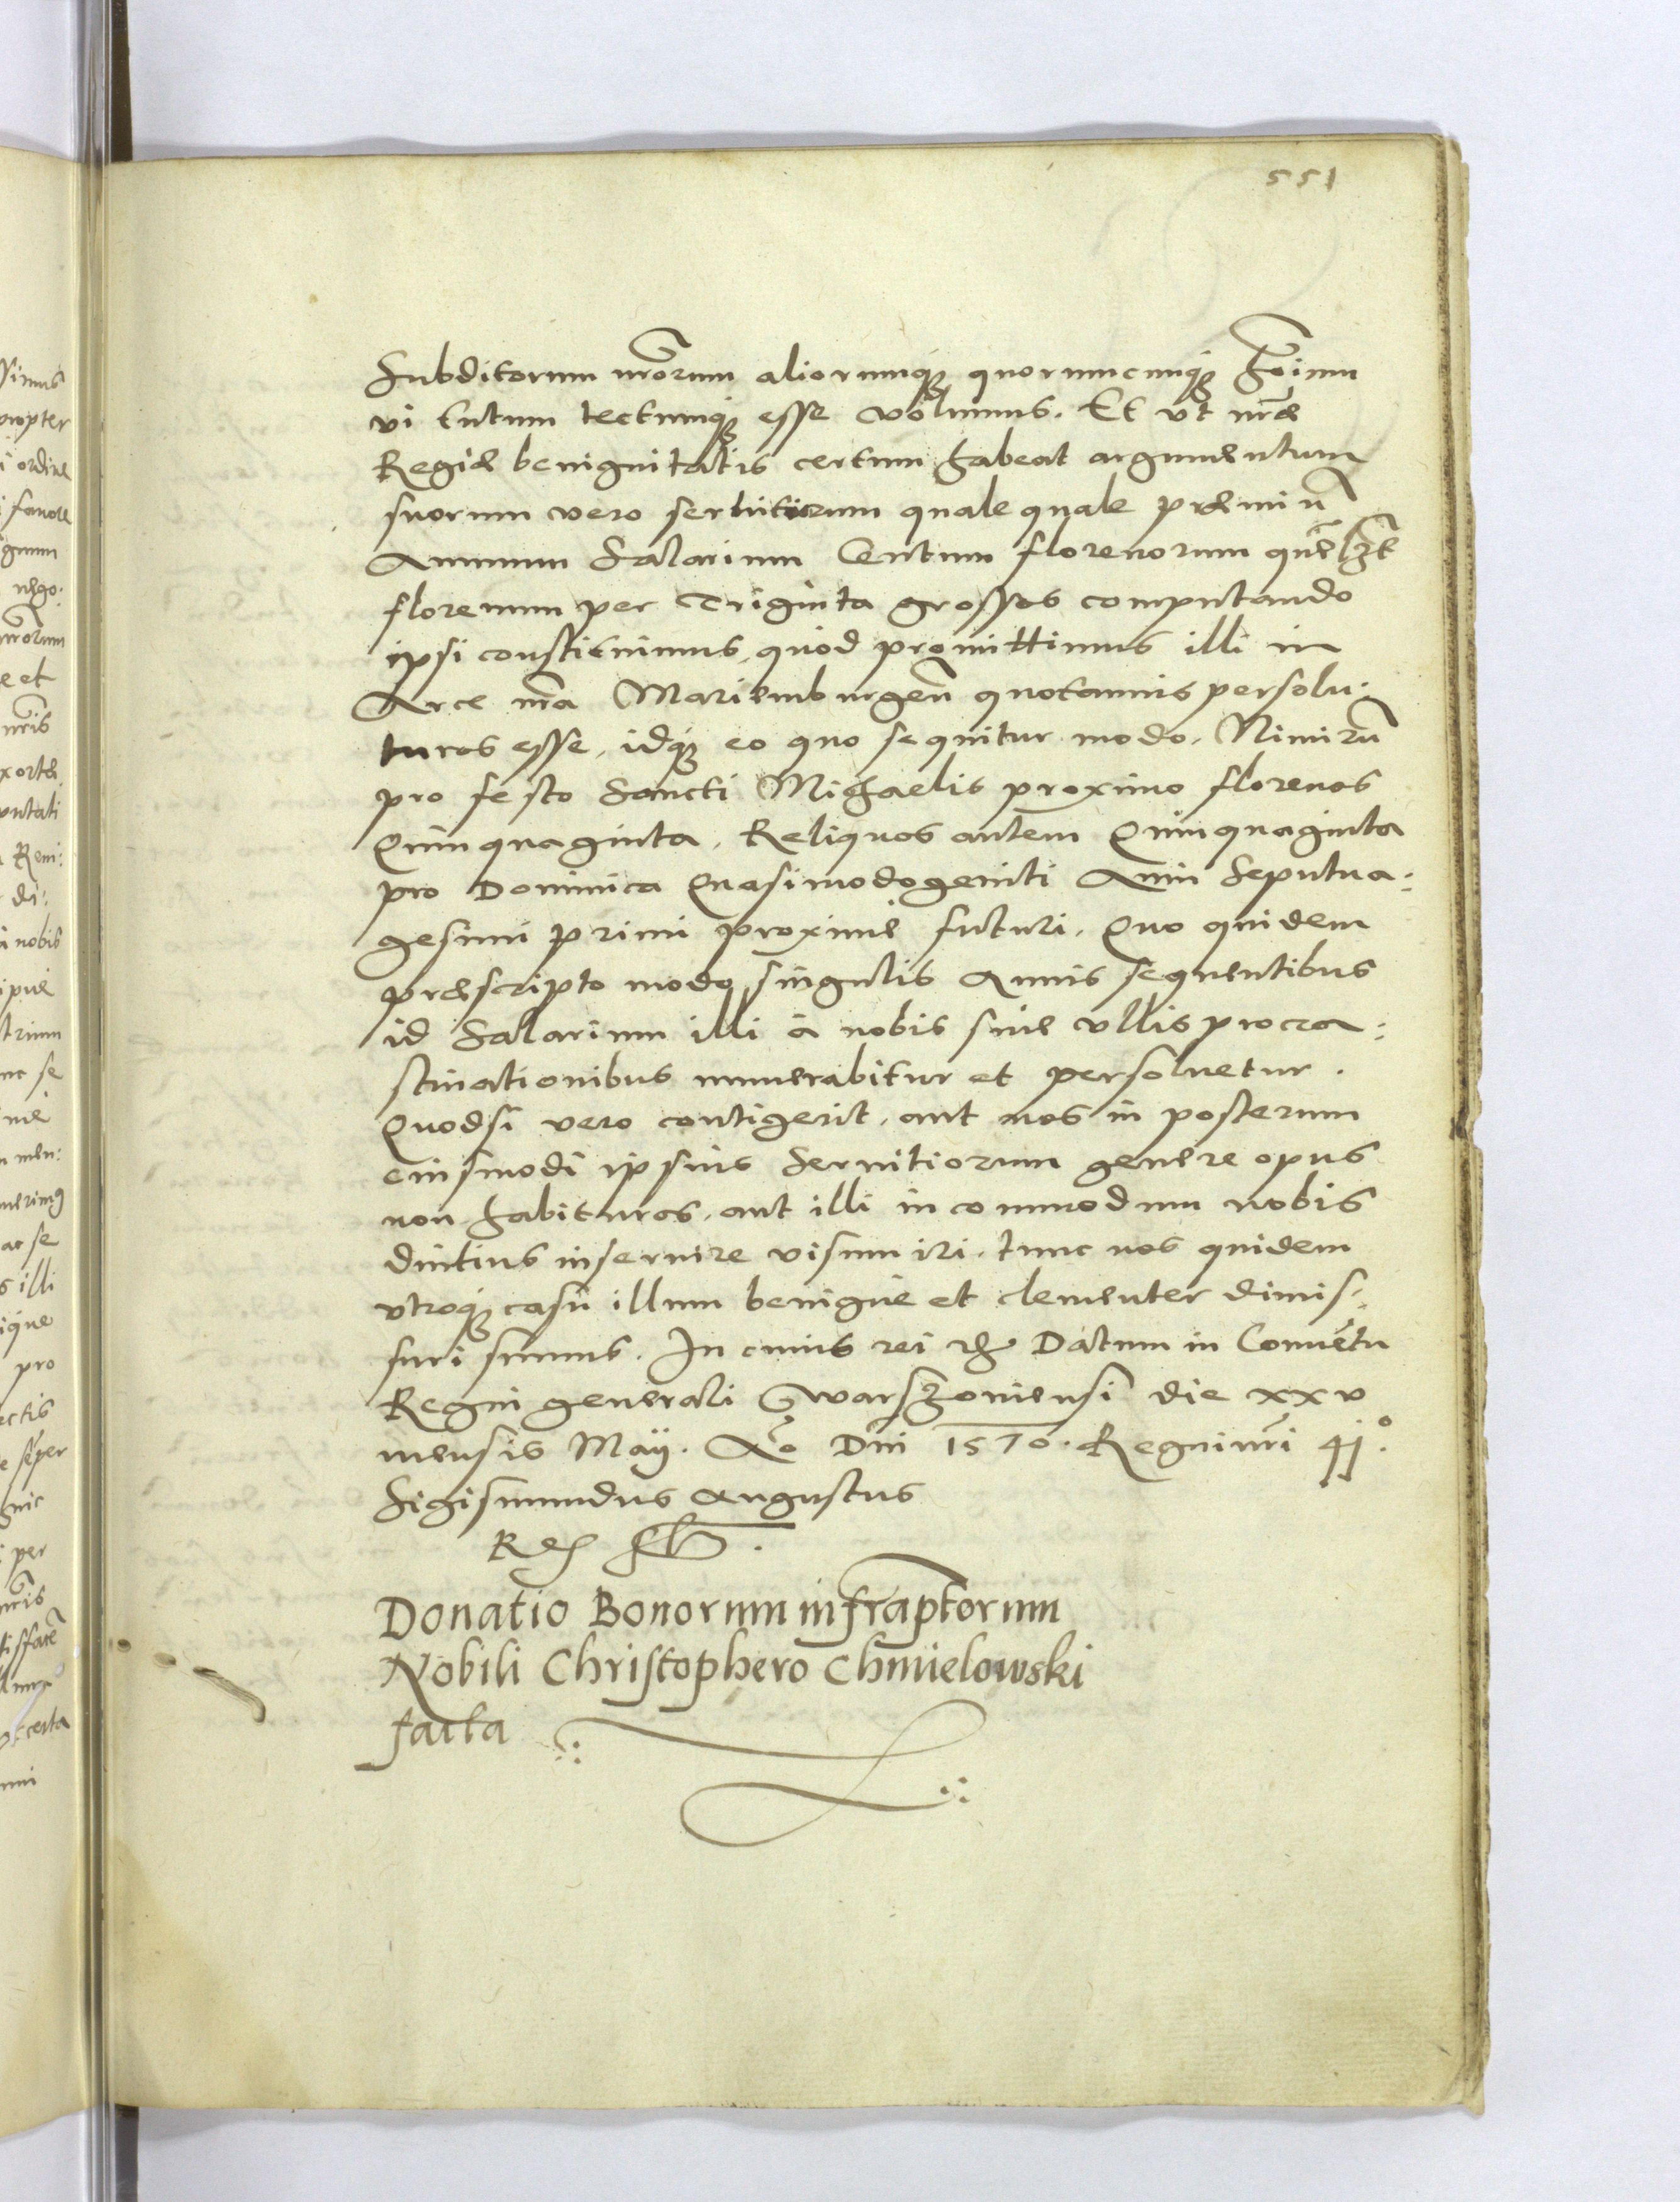 551
Subditorum nrõrum aliorumq; quorumcunq; hoĩnu
vi tutum tectumq; esse volumus. Et vt nrae
Regiae benignitatis certum habeat argumentum
suorum vero seruitiorum quale quale praemiũ
Annuum Salarium Centum florenorum quẽlzt
florenum per Triginta grossos computando
ipsi constituimus, quod promittimus illi in
Arce nra Mariemburgeñ quotannis persolu:
turos esse, idq; eo quo sequitur modo. Nimirũ
pro festo Sancti Michaelis proximo florenos
Quinquaginta, Reliquos autem Quinquaginta
pro Dominica Quasimodogeniti Anni Septua:
gesimi primi proxime futuri. Quo quidem
praescripto modo, singulis Annis sequentibus
id Salarium illi à nobis sine vllis procra:
stinationibus numerabitur et persoluetur.
Quodsi vero contigerit, aut nos in posterum
eiusmodi ipsius Seruitiorum genere opus
non habituros, aut illi incommodum nobis
diutius inseruire visum iri, tunc nos quidem
vtroq; casu illum benigne et clementer dimis:
suri sumus. In cuius rei rẽ Datum in Conuẽtu
Regni generali Warszouiensi die xxv
mensis Maij. Ao Dni 1570. Regni nri 41°.
Sigismundus Augustus
Rex sst.
Donatio Bonorum infraptorum
Nobili Christophero Chmielowski
facta
ssimus
propter
ordine
fauore
nego.
nrorum
e et
nris
exorta
Reui:
di:
nobis
trium
nc se
men:
ac se
s illi
pro
ectis
per
nris
certa